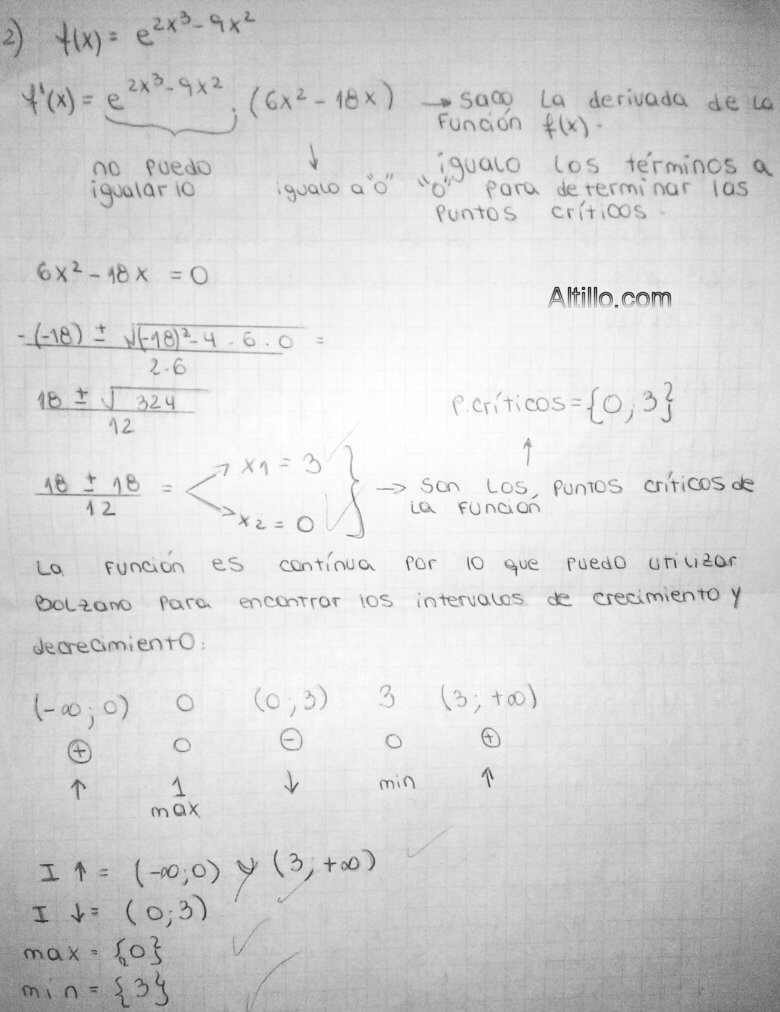 2) f(x) = e^{2x³ - 9x²}
f'(x) = e^{2x³ - 9x²} . (6x² - 18x) → saco la derivada de la
función f(x).
no puedo
igualarlo
↓
igualo a "0"
igualo los términos a
"0" para determinar las
puntos críticos.
6x² - 18x = 0
Altillo.com
-(-18) ± √(-18)² - 4 . 6 . 0 =
2.6
18 ± √324
12
P.críticos = {0; 3}
↑
18 ± 18 =
12
x1 = 3
x2 = 0
→ son los puntos críticos de
la función
La función es contínua por lo que puedo utilizar
Bolzano para encontrar los intervalos de crecimiento y
decrecimiento:
(-∞; 0) 0 (0; 3) 3 (3; +∞)
⊕ 0 ⊖ 0 ⊕
↑ 1 ↓ min ↑
max
I ↑ = (-∞;0) y (3; +∞)
I ↓ = (0;3)
max = {0}
min = {3}